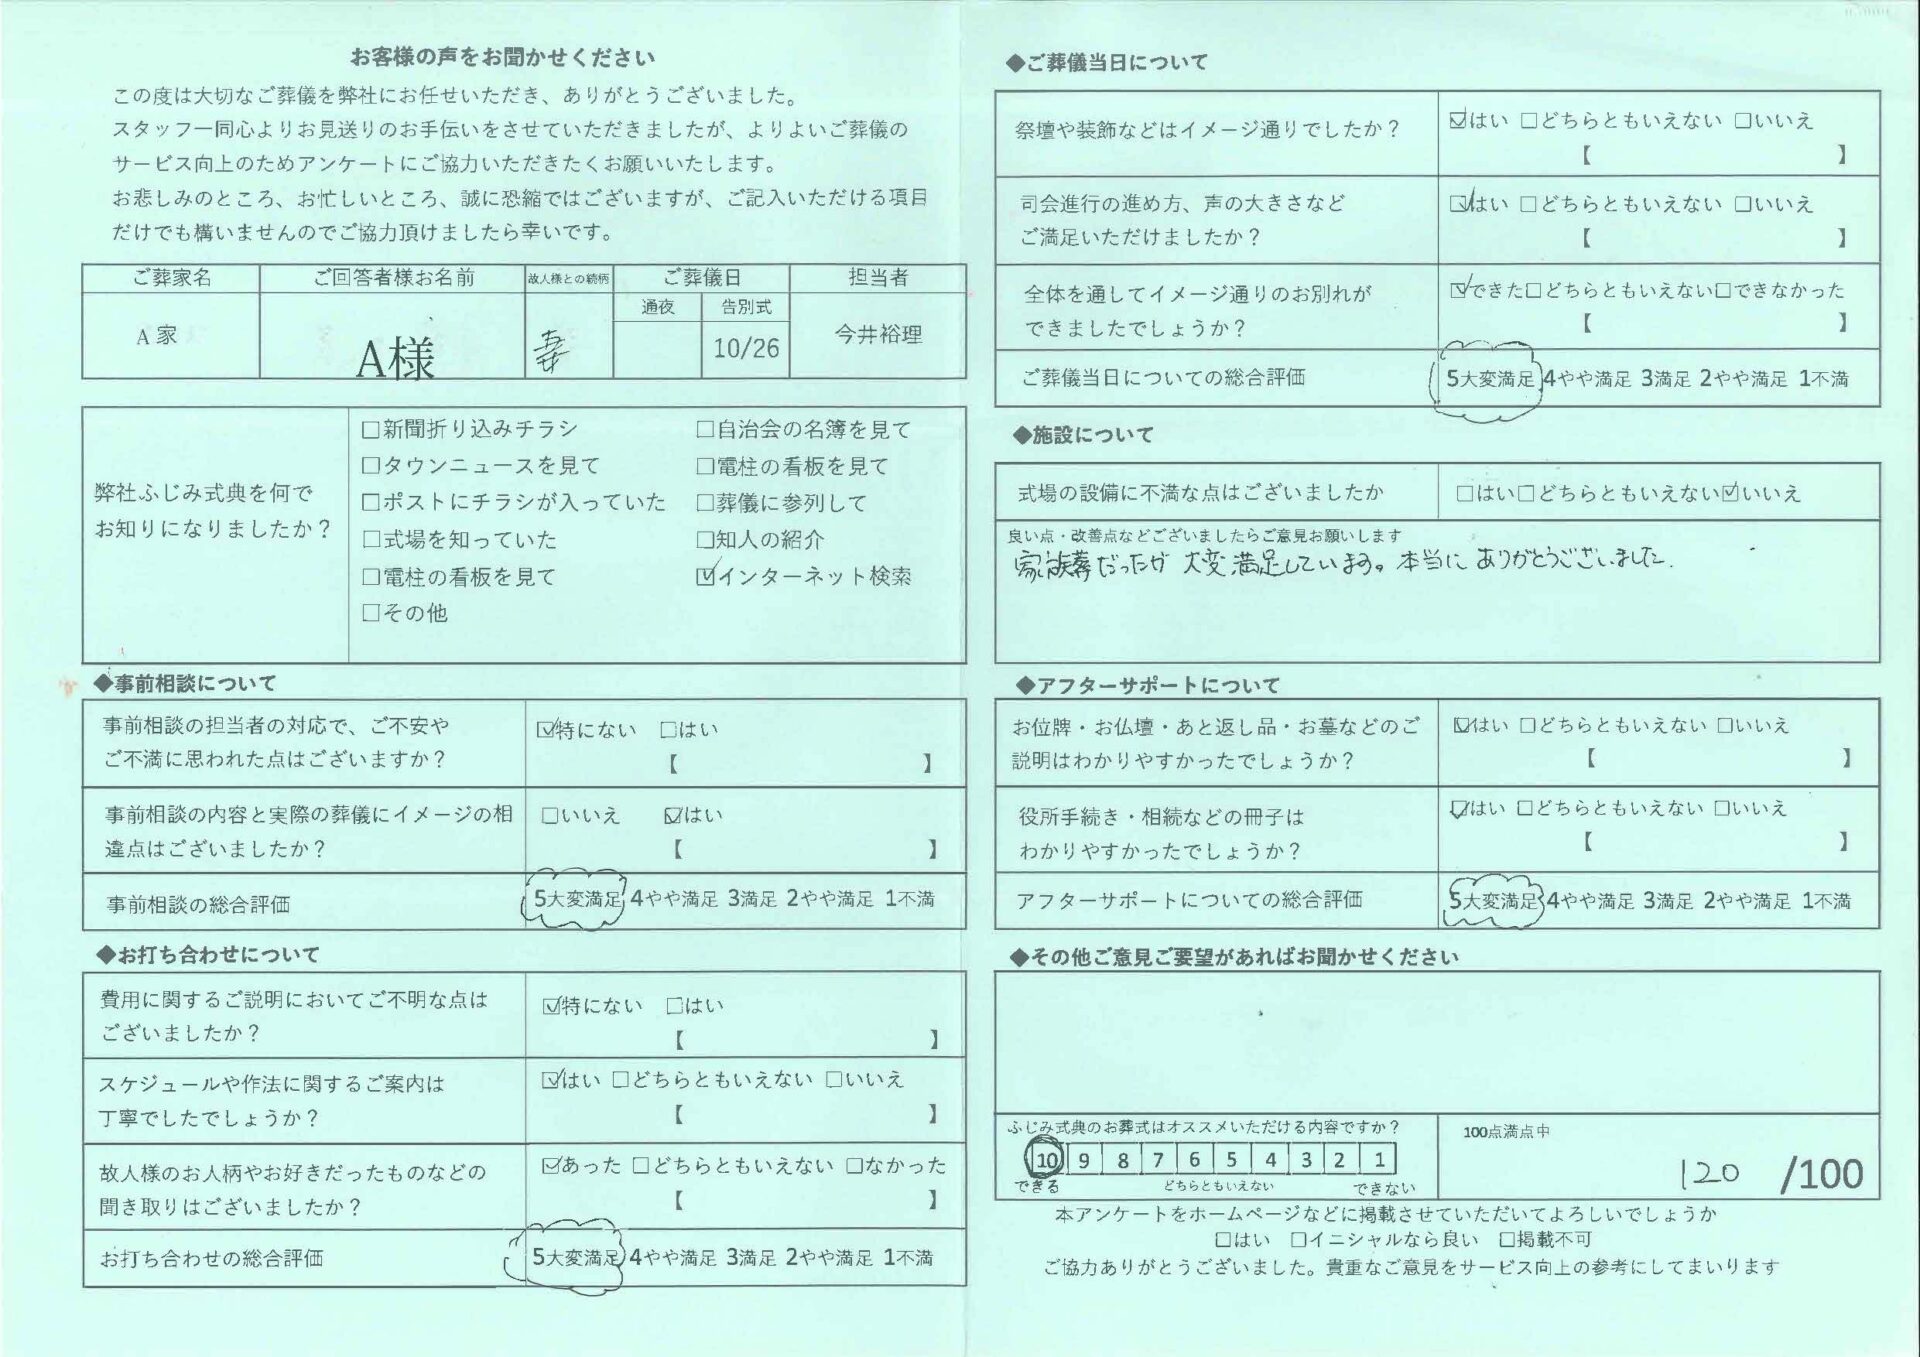 お客様の声をお聞かせください
この度は大切なご葬儀を弊社にお任せいただき、ありがとうございました。
スタッフ一同心よりお見送りのお手伝いをさせていただきましたが、よりよいご葬儀の
サービス向上のためアンケートにご協力いただきたくお願いいたします。
お悲しみのところ、お忙しいところ、誠に恐縮ではございますが、ご記入いただける項目
だけでも構いませんのでご協力頂けましたら幸いです。
ご葬家名 ご回答者様お名前 故人様との続柄 ご葬儀日 担当者
通夜 告別式
A家 A様 10/26 今井裕理
弊社ふじみ式典を何で
お知りになりましたか？
□新聞折り込みチラシ □自治会の名簿を見て
□タウンニュースを見て □電柱の看板を見て
□ポストにチラシが入っていた □葬儀に参列して
□式場を知っていた □知人の紹介
□電柱の看板を見て ☑インターネット検索
□その他
◆事前相談について
事前相談の担当者の対応で、ご不安や
ご不満に思われた点はございますか？
☑特にない □はい
【 】
事前相談の内容と実際の葬儀にイメージの相
違点はございましたか？
□いいえ ☑はい
【 】
事前相談の総合評価 5大変満足 4やや満足 3満足 2やや満足 1不満
◆お打ち合わせについて
費用に関するご説明においてご不明な点は
ございましたか？
☑特にない □はい
【 】
スケジュールや作法に関するご案内は
丁寧でしたでしょうか？
☑はい □どちらともいえない □いいえ
【 】
故人様のお人柄やお好きだったものなどの
聞き取りはございましたか？
☑あった □どちらともいえない □なかった
【 】
お打ち合わせの総合評価 5大変満足 4やや満足 3満足 2やや満足 1不満
◆ご葬儀当日について
祭壇や装飾などはイメージ通りでしたか？
☑はい □どちらともいえない □いいえ
【 】
司会進行の進め方、声の大きさなど
ご満足いただけましたか？
☑はい □どちらともいえない □いいえ
【 】
全体を通してイメージ通りのお別れが
できましたでしょうか？
☑できた□どちらともいえない□できなかった
【 】
ご葬儀当日についての総合評価 5大変満足 4やや満足 3満足 2やや満足 1不満
◆施設について
式場の設備に不満な点はございましたか □はい□どちらともいえない☑いいえ
良い点・改善点などございましたらご意見お願いします
家族葬だったが 大変満足しています。本当に ありがとうございました.
◆アフターサポートについて
お位牌・お仏壇・あと返し品・お墓などのご
説明はわかりやすかったでしょうか？
☑はい □どちらともいえない □いいえ
【 】
役所手続き・相続などの冊子は
わかりやすかったでしょうか？
☑はい □どちらともいえない □いいえ
【 】
アフターサポートについての総合評価 5大変満足 4やや満足 3満足 2やや満足 1不満
◆その他ご意見ご要望があればお聞かせください
ふじみ式典のお葬式はオススメいただける内容ですか？
10 9 8 7 6 5 4 3 2 1
できる どちらともいえない できない
100点満点中
120 /100
本アンケートをホームページなどに掲載させていただいてよろしいでしょうか
□はい □イニシャルなら良い □掲載不可
ご協力ありがとうございました。貴重なご意見をサービス向上の参考にしてまいります